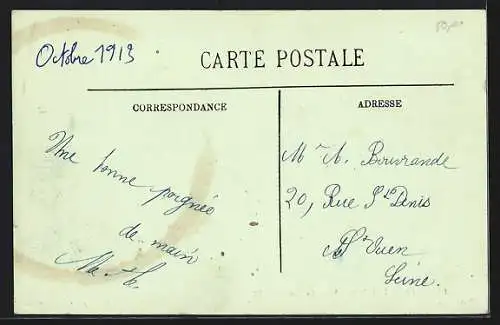 Octobre 1913
CARTE POSTALE
CORRESPONDANCE
ADRESSE
Une bonne poignée
de main
Mr A. Bouvrande
20, Rue St Denis
St Ouen
Seine.